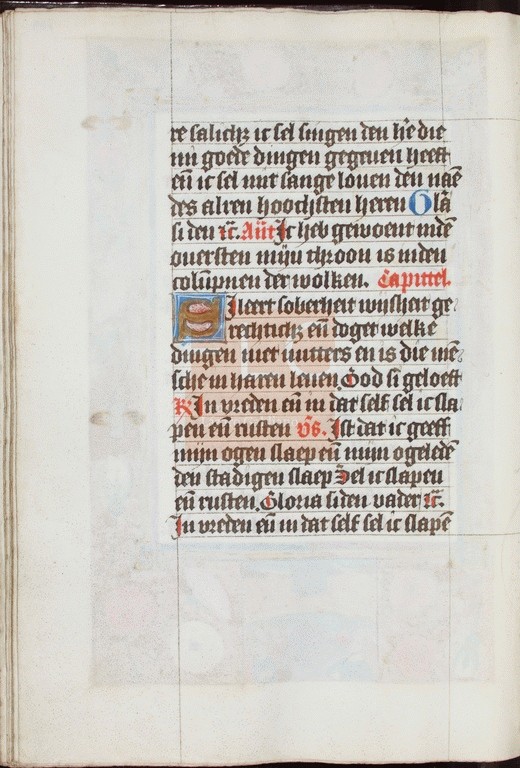 re salich; ic sel singen den hr̄e die
mi goede dingen gegeuen heeft
eñ ic sel mit sange louen den naē
des alren hoochsten heren Glā
si den ꝛc̄. Añt Ic heb gewoent indē
ouersten mijn throon is inden
colūpnen der wolken. Capittel.
Si leert soberheit wijsheit ge
rechtich; eñ doget welke
dingen niet nutters en is die mē
sche in haren leuen. God si geloeft
R⁊ In vreden eñ in dat self sel ic sla
pen eñ rusten v̄s. Ist dat ic geeff
mijn ogen slaep eñ mijn ogeledē
den stadigen slaep Sel ic slapen
eñ rusten. Gloria si den vader ꝛc̄.
In vreden eñ in dat self sel ic slapē